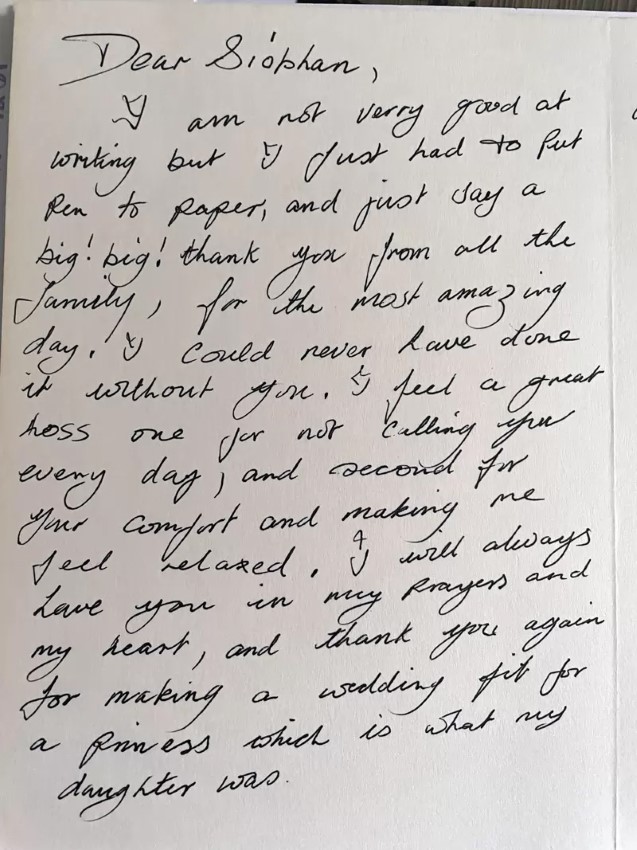 Dear Siobhan,
I am not verry good at
writing but I just had to put
pen to paper, and just say a
big! big! thank you from all the
family, for the most amazing
day. I could never have done
it without you. I feel a great
loss one for not calling you
every day, and second for
your comfort and making me
feel relaxed. I will always
have you in my prayers and
my heart, and thank you again
for making a wedding fit for
a priness which is what my
daughter was.